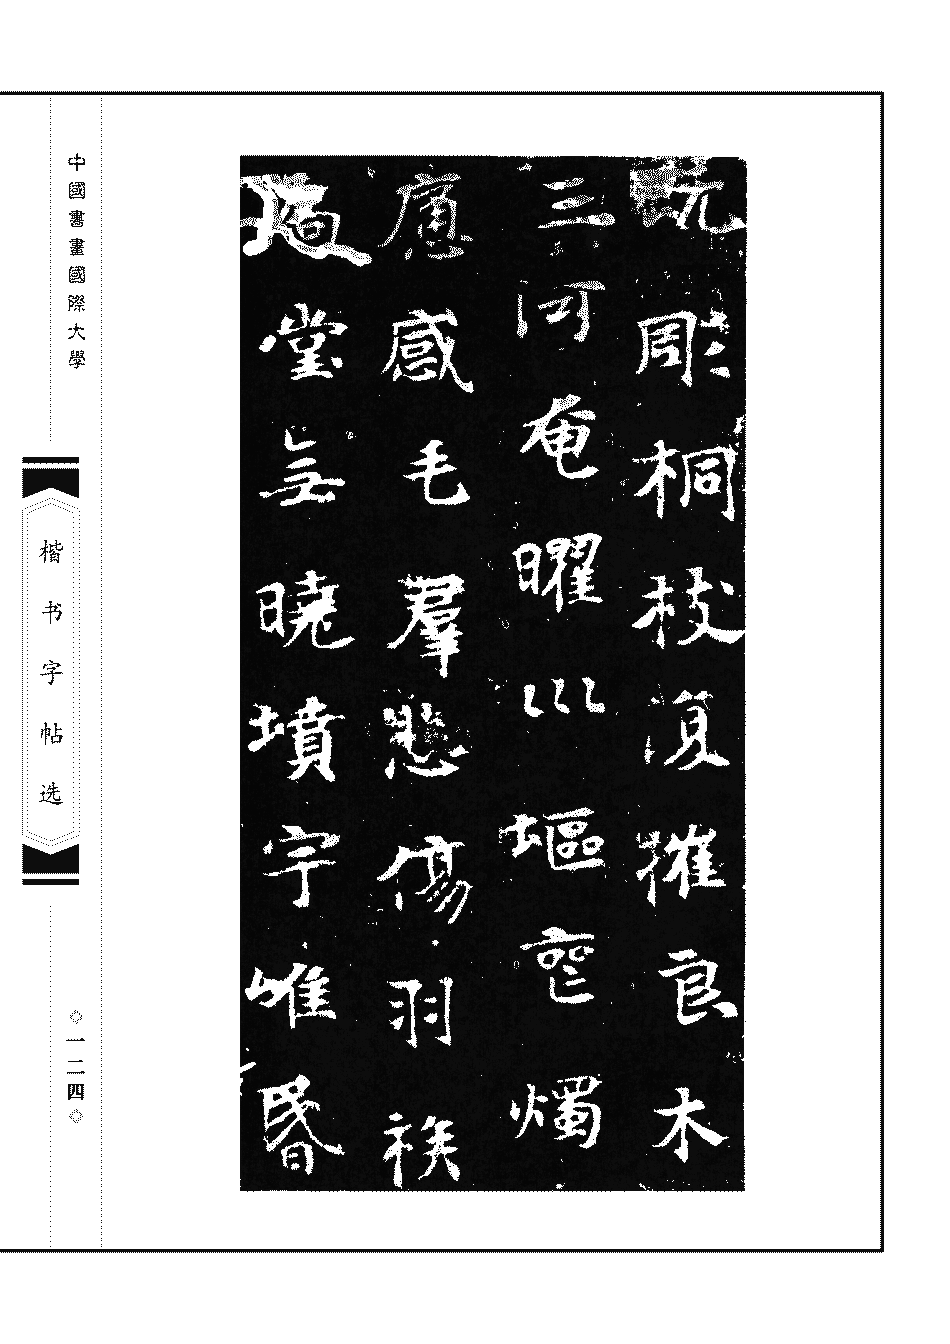 既彫桐枝復摧良木
三河奄曜巛塸喪燭
應感毛羣悲傷羽族
堂無曉墳宇唯昏
中國書畫國際大學
楷书字帖选
◇一二四◇